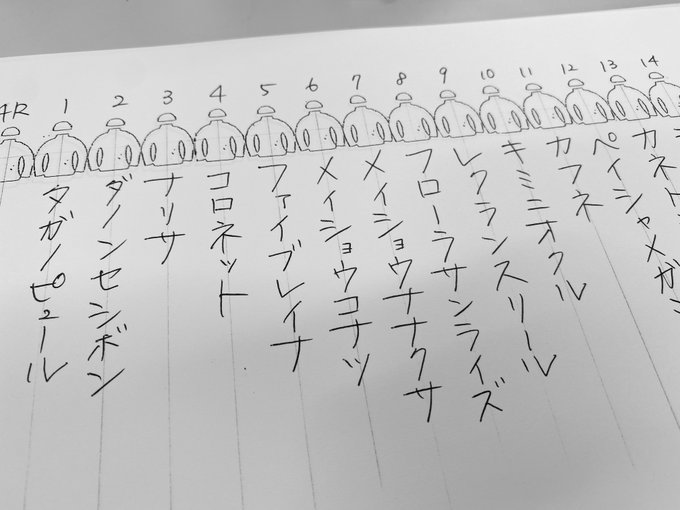 4R 1 2 3 4 5 6 7 8 9 10 11 12 13 14
タガノピュール
ダノンセシボン
ナリサ
コロネット
ファイブレイナ
メイショウコナツ
メイショウナナクサ
フローラサンライズ
レクランスリール
キミニオクル
カフネ
ペイシャメガミ
カネト